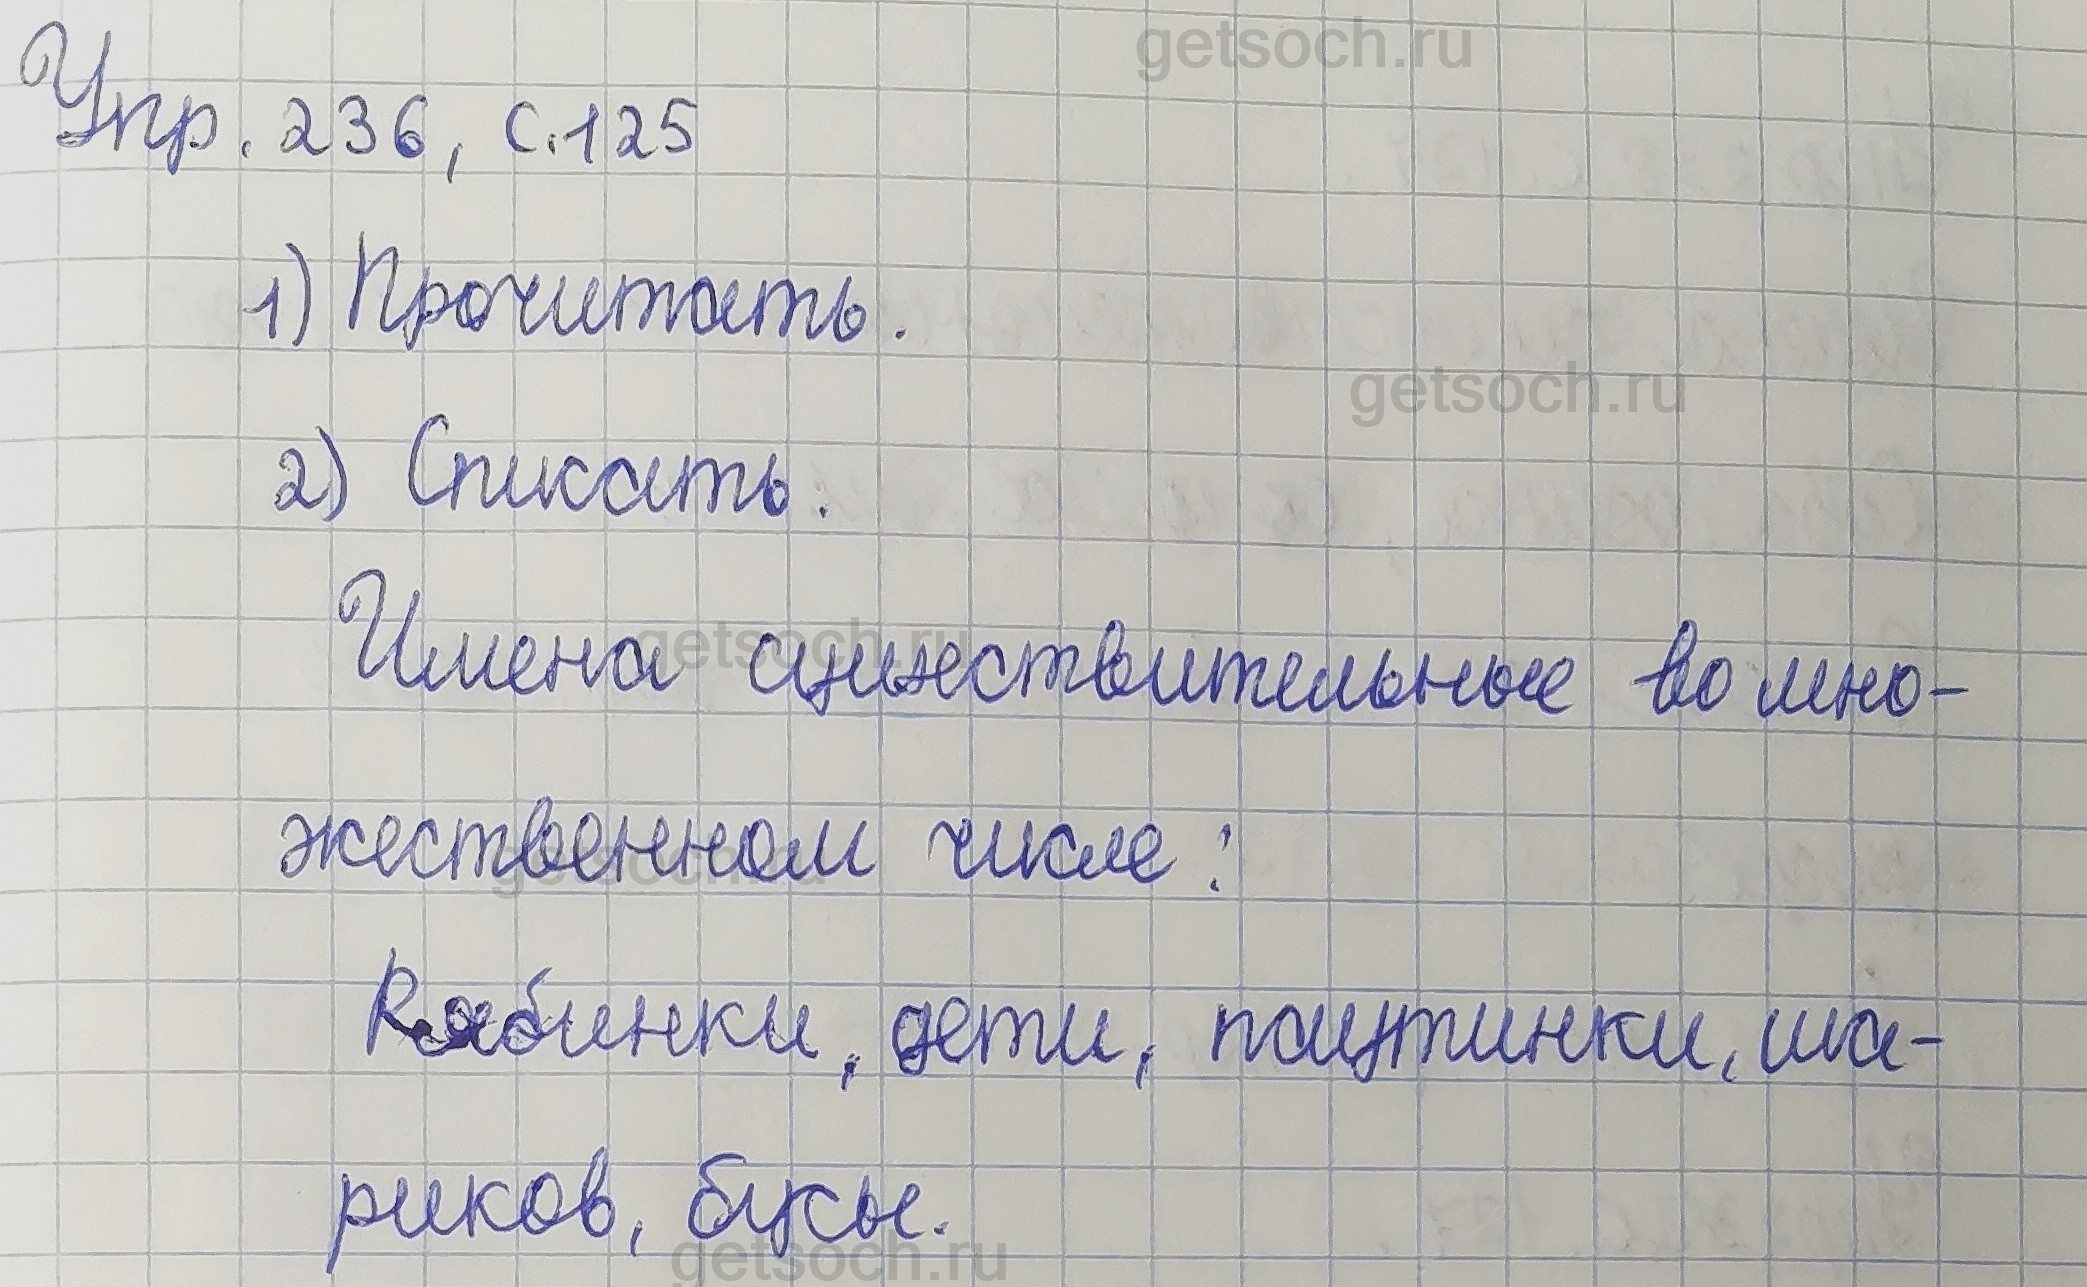 getsoch.ru
Упр. 236, с. 125
1) Прочитать.
getsoch.ru
2) Списать.
getsoch.ru
Имена существительные во мно-
getsoch.ru
жественном числе:
Рябинки, дети, паутинки, ша-
риков, бусы.
getsoch.ru